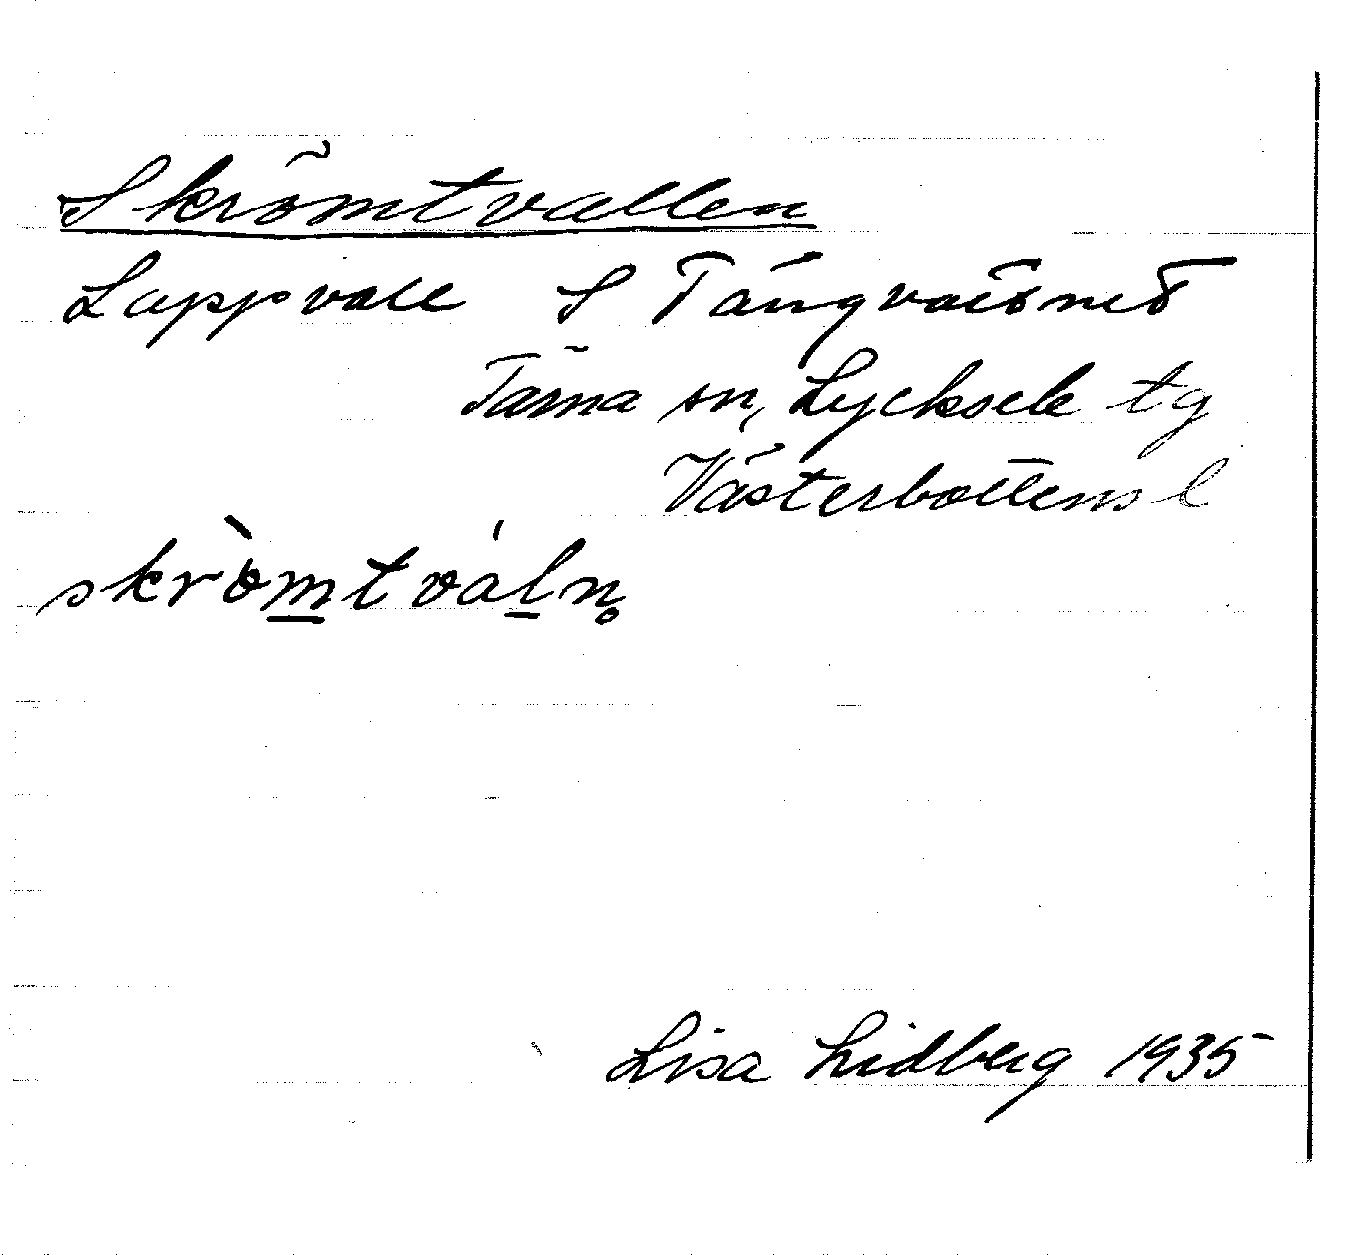 Skrömtvallen
Lappvall S Tängvattnet
Tärna sn, Lycksele tg
Västerbottens l
skrò̀m̲tvál̲n̥
Lisa Lidberg 1935